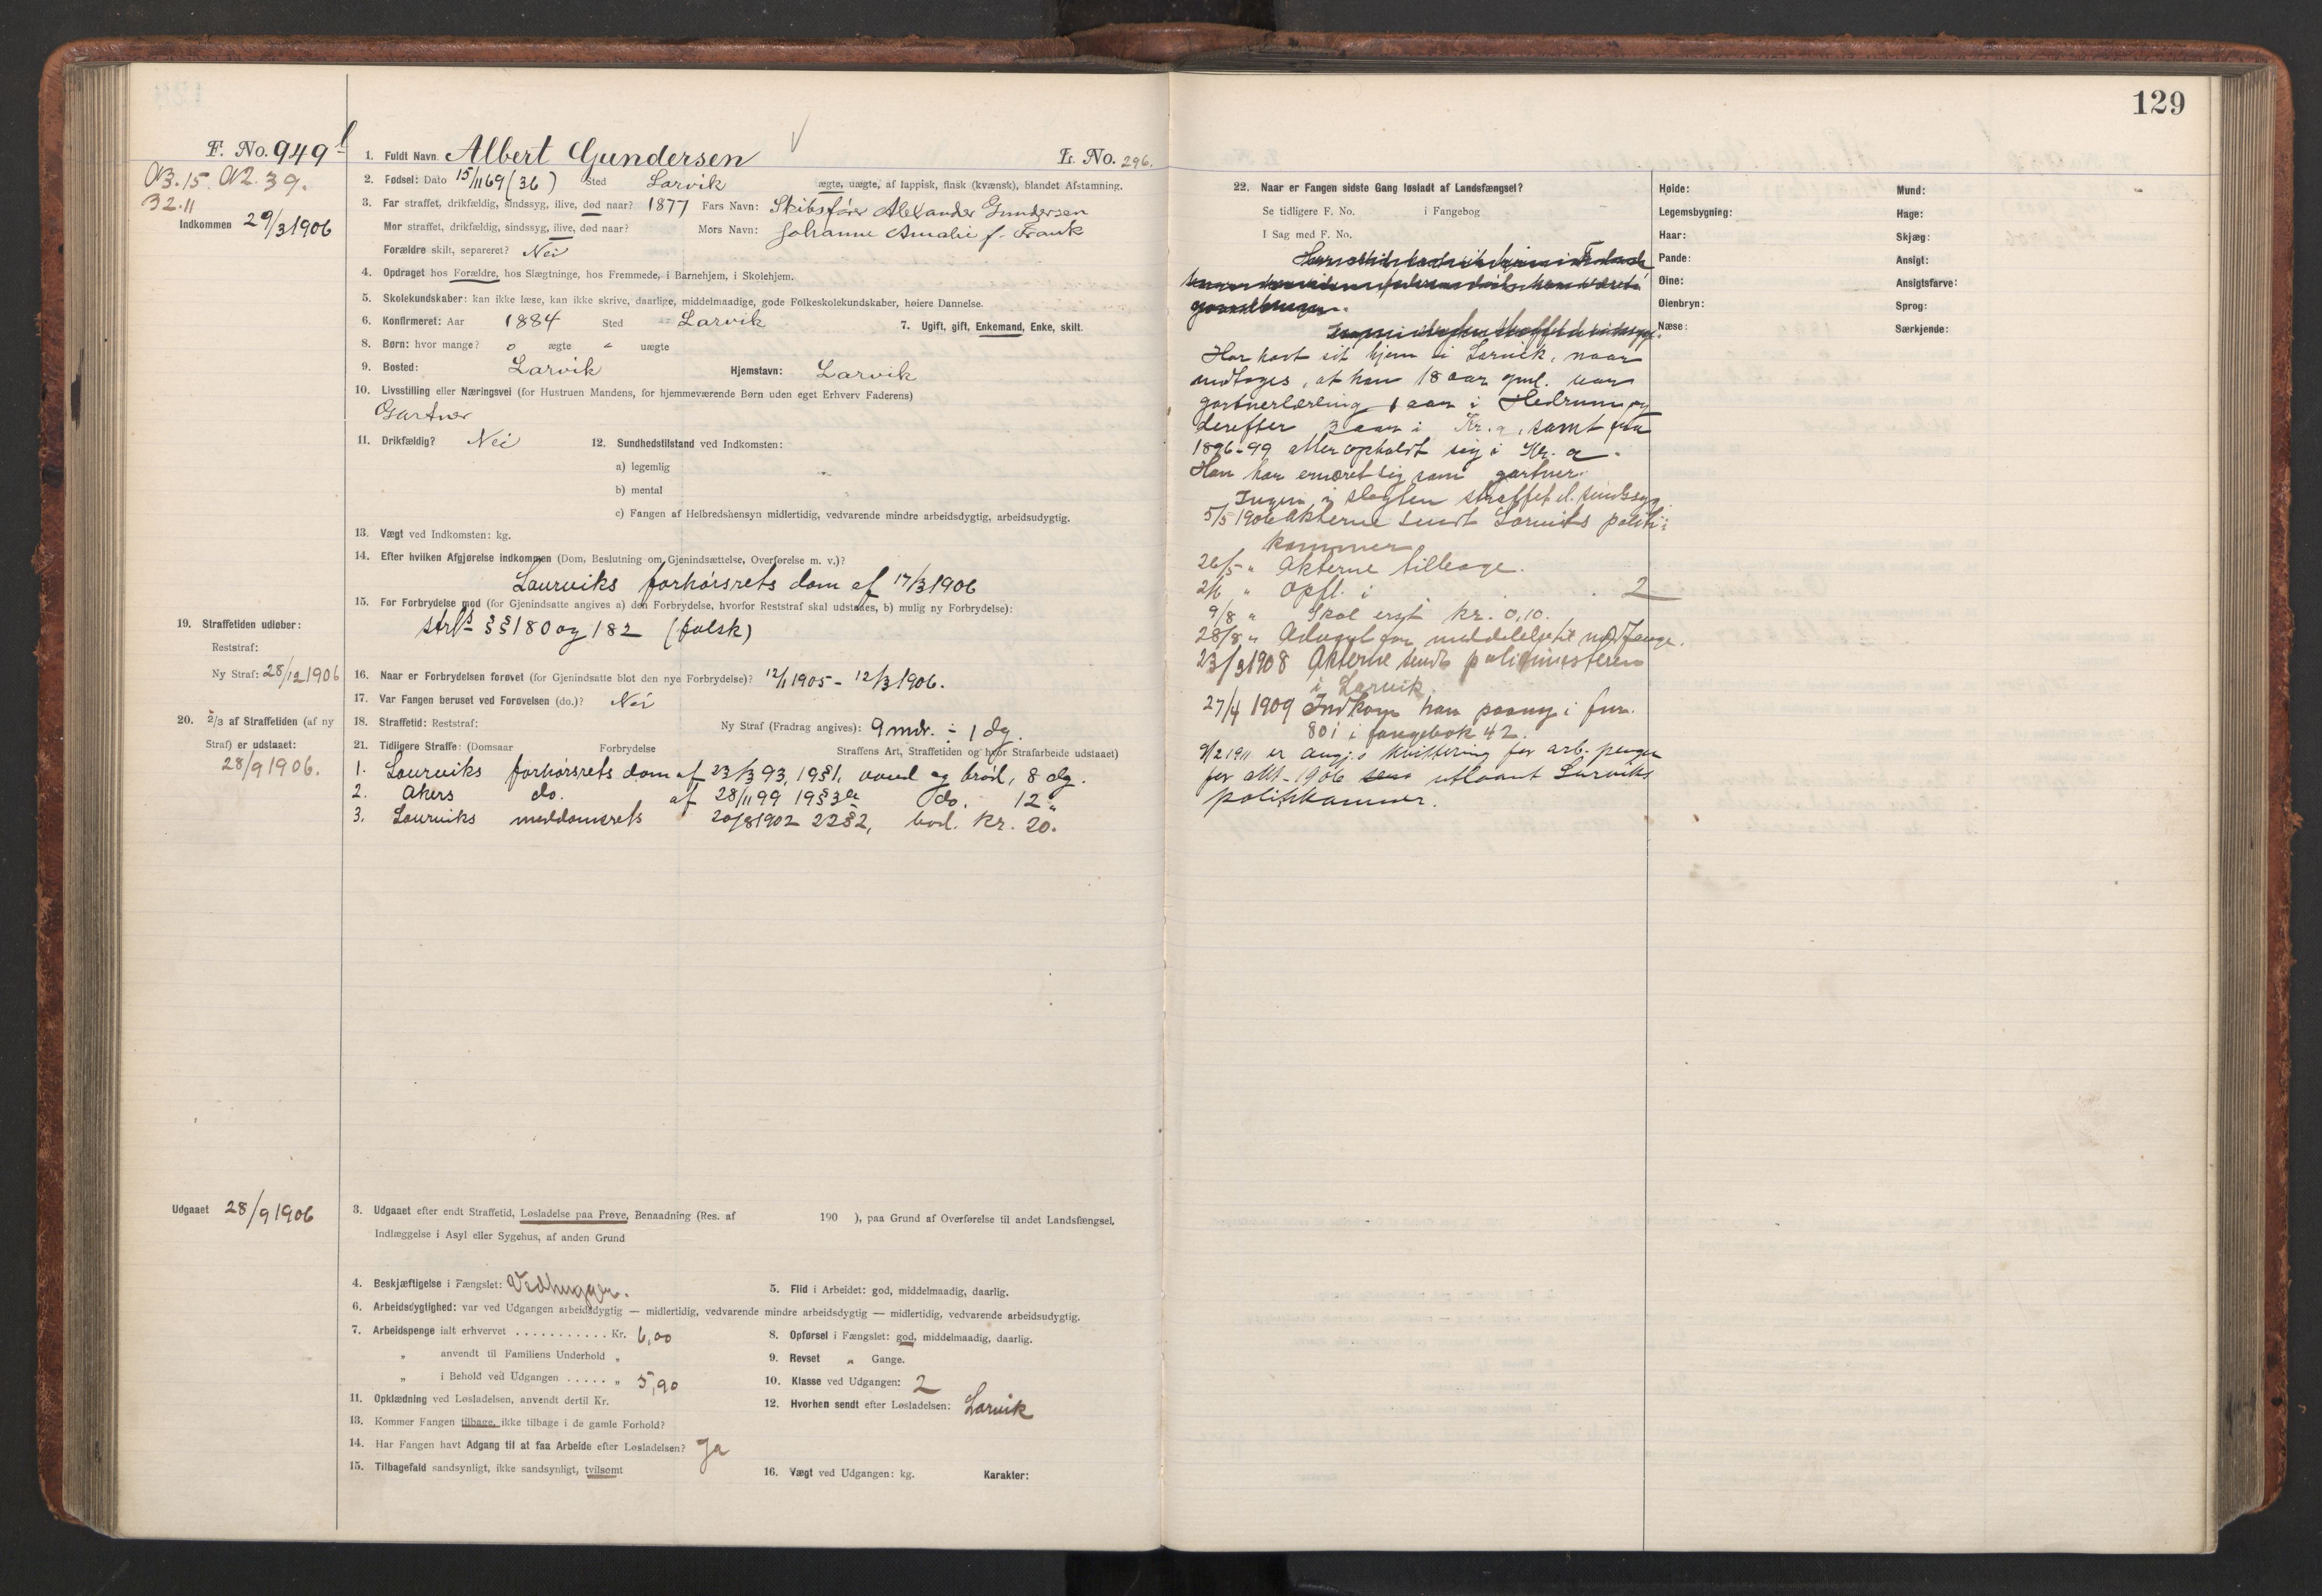 129
F. No. 949
1. Fuldt Navn Albert Gundersen L. No. 296.
A3.15. A2.39.
32.11
2. Fødsel: Dato 15/11 69 (36) Sted Larvik ægte, uægte, af lappisk, finsk (kvænsk), blandet Afstamning.
Indkommen 29/3 1906
3. Far straffet, drikfældig, sindssyg, ilive, død naar? 1877 Fars Navn: Skibsfører Alexander Gundersen
Mor straffet, drikfældig, sindssyg, ilive, død naar? Mors Navn: Johanne Amalie f. Frank
Forældre skilt, separeret? Nei
4. Opdraget hos Forældre, hos Slægtninge, hos Fremmede, i Barnehjem, i Skolehjem.
5. Skolekundskaber: kan ikke læse, kan ikke skrive, daarlige, middelmaadige, gode Folkeskolekundskaber, høiere Dannelse.
6. Konfirmeret: Aar 1884 Sted Larvik 7. Ugift, gift, Enkemand, Enke, skilt.
8. Børn: hvor mange? 0 ægte " uægte
9. Bosted: Larvik Hjemstavn: Larvik
10. Livsstilling eller Næringsvei (for Hustruen Mandens, for hjemmeværende Børn uden eget Erhverv Faderens)
Gartner
11. Drikfældig? Nei 12. Sundhedstilstand ved Indkomsten:
a) legemlig
b) mental
c) Fangen af Helbredshensyn midlertidig, vedvarende mindre arbeidsdygtig, arbeidsudygtig.
13. Vægt ved Indkomsten: kg.
14. Efter hvilken Afgjørelse indkommen (Dom, Beslutning om Gjenindsættelse, Overførelse m. v.)?
Laurviks forhørsrets dom af 17/3 1906
15. For Forbrydelse mod (for Gjenindsatte angives a) den Forbrydelse, hvorfor Reststraf skal udstaaes, b) mulig ny Forbrydelse):
§§ 180 og 182 (falsk)
19. Straffetiden udløber:
Reststraf:
Ny Straf: 28/12 1906
16. Naar er Forbrydelsen forøvet (for Gjenindsatte blot den nye Forbrydelse)? 12/1 1905 - 12/3 1906.
17. Var Fangen beruset ved Forøvelsen (do.)? Nei
20. 2/3 af Straffetiden (af ny
Straf) er udstaaet:
28/9 1906.
18. Straffetid: Reststraf: Ny Straf (Fradrag angives): 9 mdr. ÷ 1 dg.
21. Tidligere Straffe: (Domsaar Forbrydelse Straffens Art, Straffetiden og hvor Strafarbeide udstaaet)
1. Laurviks forhørsrets dom af 23/3 93, 19 § 1, vand og brød, 8 dg.
2. Akers do. af 28/11 99 19 § 3 do. 12 "
3. Laurviks meddomsrets 20/8 1902 22 § 2, bod. kr. 20.
Udgaaet 28/9 1906
3. Udgaaet efter endt Straffetid, Løsladelse paa Prøve, Benaadning (Res. af 190 ), paa Grund af Overførelse til andet Landsfængsel,
Indlæggelse i Asyl eller Sygehus, af anden Grund
4. Beskjæftigelse i Fængslet: Vedhugger. 5. Flid i Arbeidet: god, middelmaadig, daarlig.
6. Arbeidsdygtighed: var ved Udgangen arbeidsdygtig — midlertidig, vedvarende mindre arbeidsdygtig — midlertidig, vedvarende arbeidsudygtig.
7. Arbeidspenge ialt erhvervet ........... Kr. 6,00 8. Opførsel i Fængslet: god, middelmaadig, daarlig.
" anvendt til Familiens Underhold " 9. Revset " Gange.
" i Behold ved Udgangen ..... " 5,90 10. Klasse ved Udgangen: 2
11. Opklædning ved Løsladelsen, anvendt dertil Kr. 12. Hvorhen sendt efter Løsladelsen: Larvik
13. Kommer Fangen tilbage, ikke tilbage i de gamle Forhold?
14. Har Fangen havt Adgang til at faa Arbeide efter Løsladelsen? Ja
15. Tilbagefald sandsynligt, ikke sandsynligt, tvilsomt 16. Vægt ved Udgangen: kg. Karakter:
22. Naar er Fangen sidste Gang løsladt af Landsfængsel?
Se tidligere F. No. i Fangebog
I Sag med F. No.
Har havt sit hjem i Larvik, naar
undtages, at han 18 aar gml. var
gartnerlærling 1 aar i Hedrum og
derefter 3 aar i Kr.a, samt fra
1896-99 atter opholdt sig i Kr.a.
Han har ernæret sig som gartner.
Ingen i slegten straffet el. sindssyg
5/5 1906 Akterne sendt Larviks politi-
kammer
26/5 " Akterne tilbage.
2/6 " Opfl. i 2
9/8 " Skal erst. kr. 0,10.
28/8 " Advaret for meddelelse til medfange.
23/3 1908 Akterne sendt politimesteren
i Larvik.
27/4 1909 Indkom han paany i fnr.
801 i fangebok 42.
9/2 1911 er angj. kvittering for arb. penge
for 1906 utlaant Larviks
politikammer.
Høide:
Legemsbygning:
Haar:
Pande:
Øine:
Øienbryn:
Næse:
Mund:
Hage:
Skjæg:
Ansigt:
Ansigtsfarve:
Sprog:
Særkjende: